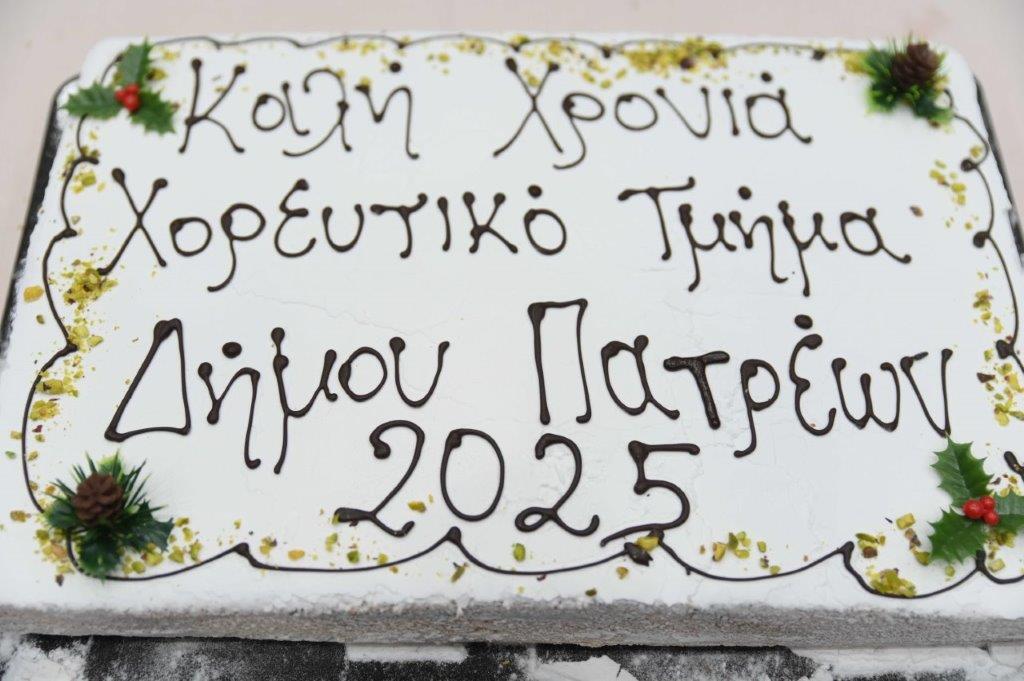 Καλή Χρονιά
Χορευτικό Τμήμα
Δήμου Πατρέων
2025